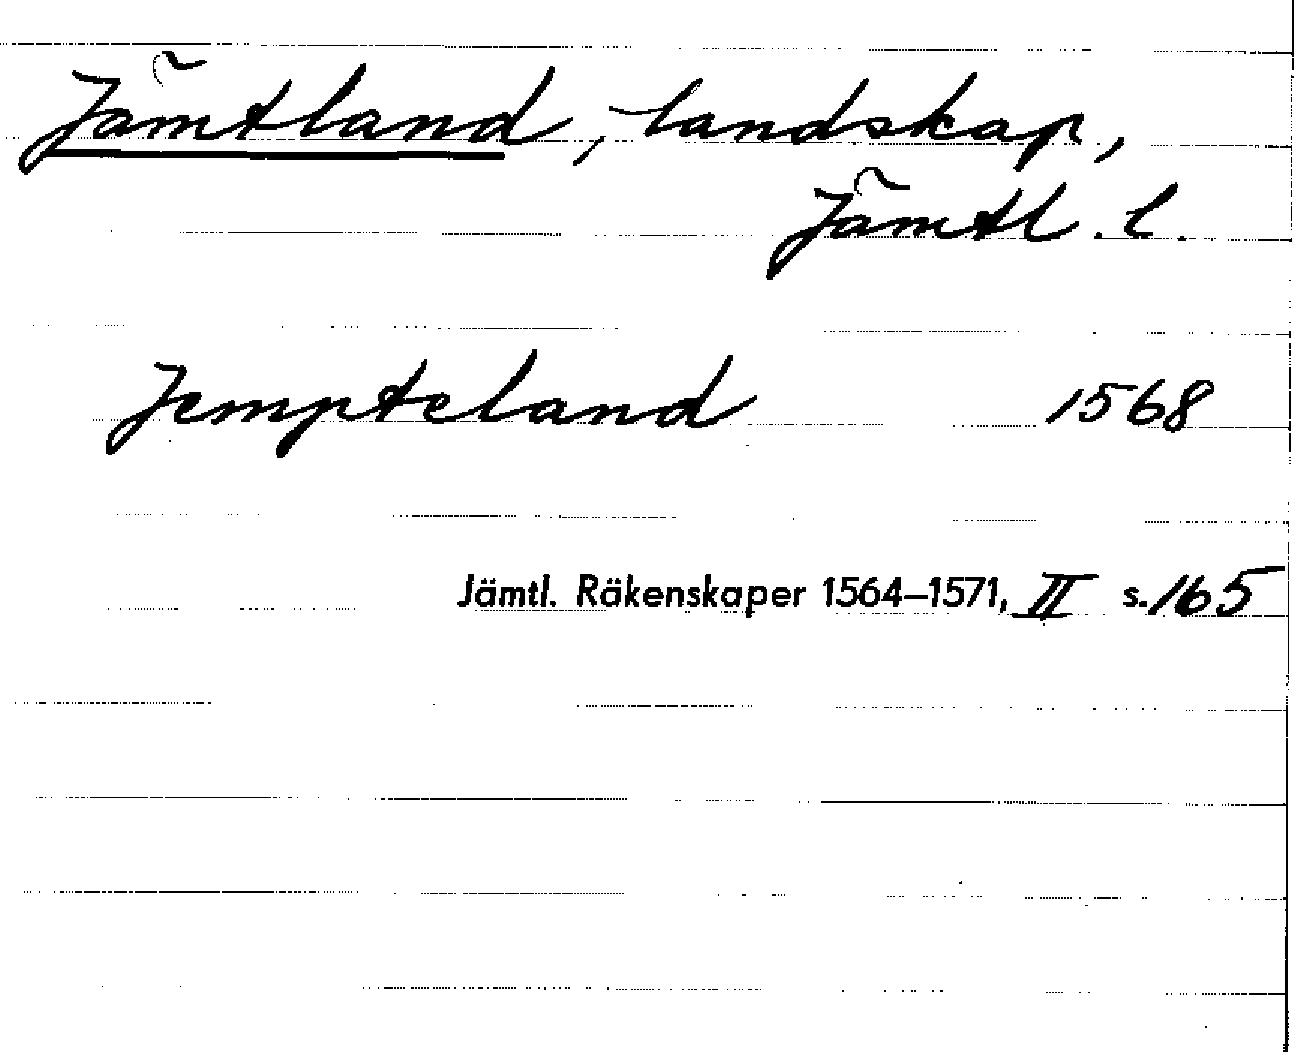 Jämtland, landskap,
Jämtl. l.
Jempteland 1568
Jämtl. Räkenskaper 1564–1571, II s. 165